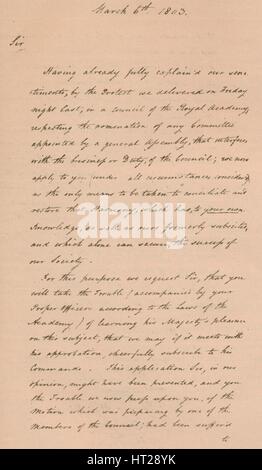 March 6th 1803.
Sir
Having already fully explain'd our sen-
timents, by the Protest we delivered on Friday
night last, in a Council of the Royal Academy,
respecting the nomination of any Committee
appointed by a general Assembly, that interferes
with the business or Duty, of the Council; we now
apply to you under all circumstances consider'd
as the only means to be taken to conciliate and
restore that Harmony, which has, to your own
knowledge as well as ours formerly subsisted,
and which alone can secure the success of
our Society.
For this purpose we request Sir, that you
will take the Trouble (accompanied by your
Proper Officer according to the Laws of the
Academy) of learning his Majesty's pleasure
on this subject, that we may if it meets with
his approbation, cheerfully subscribe to his
Commands. This application Sir, in our
opinion, might have been prevented, and you
the Trouble we now press upon you, if the
Motion which was preparing by one of the
members of the Council, had been suffer'd
to
alamy
alamy
Image ID: HT28YK
www.alamy.com